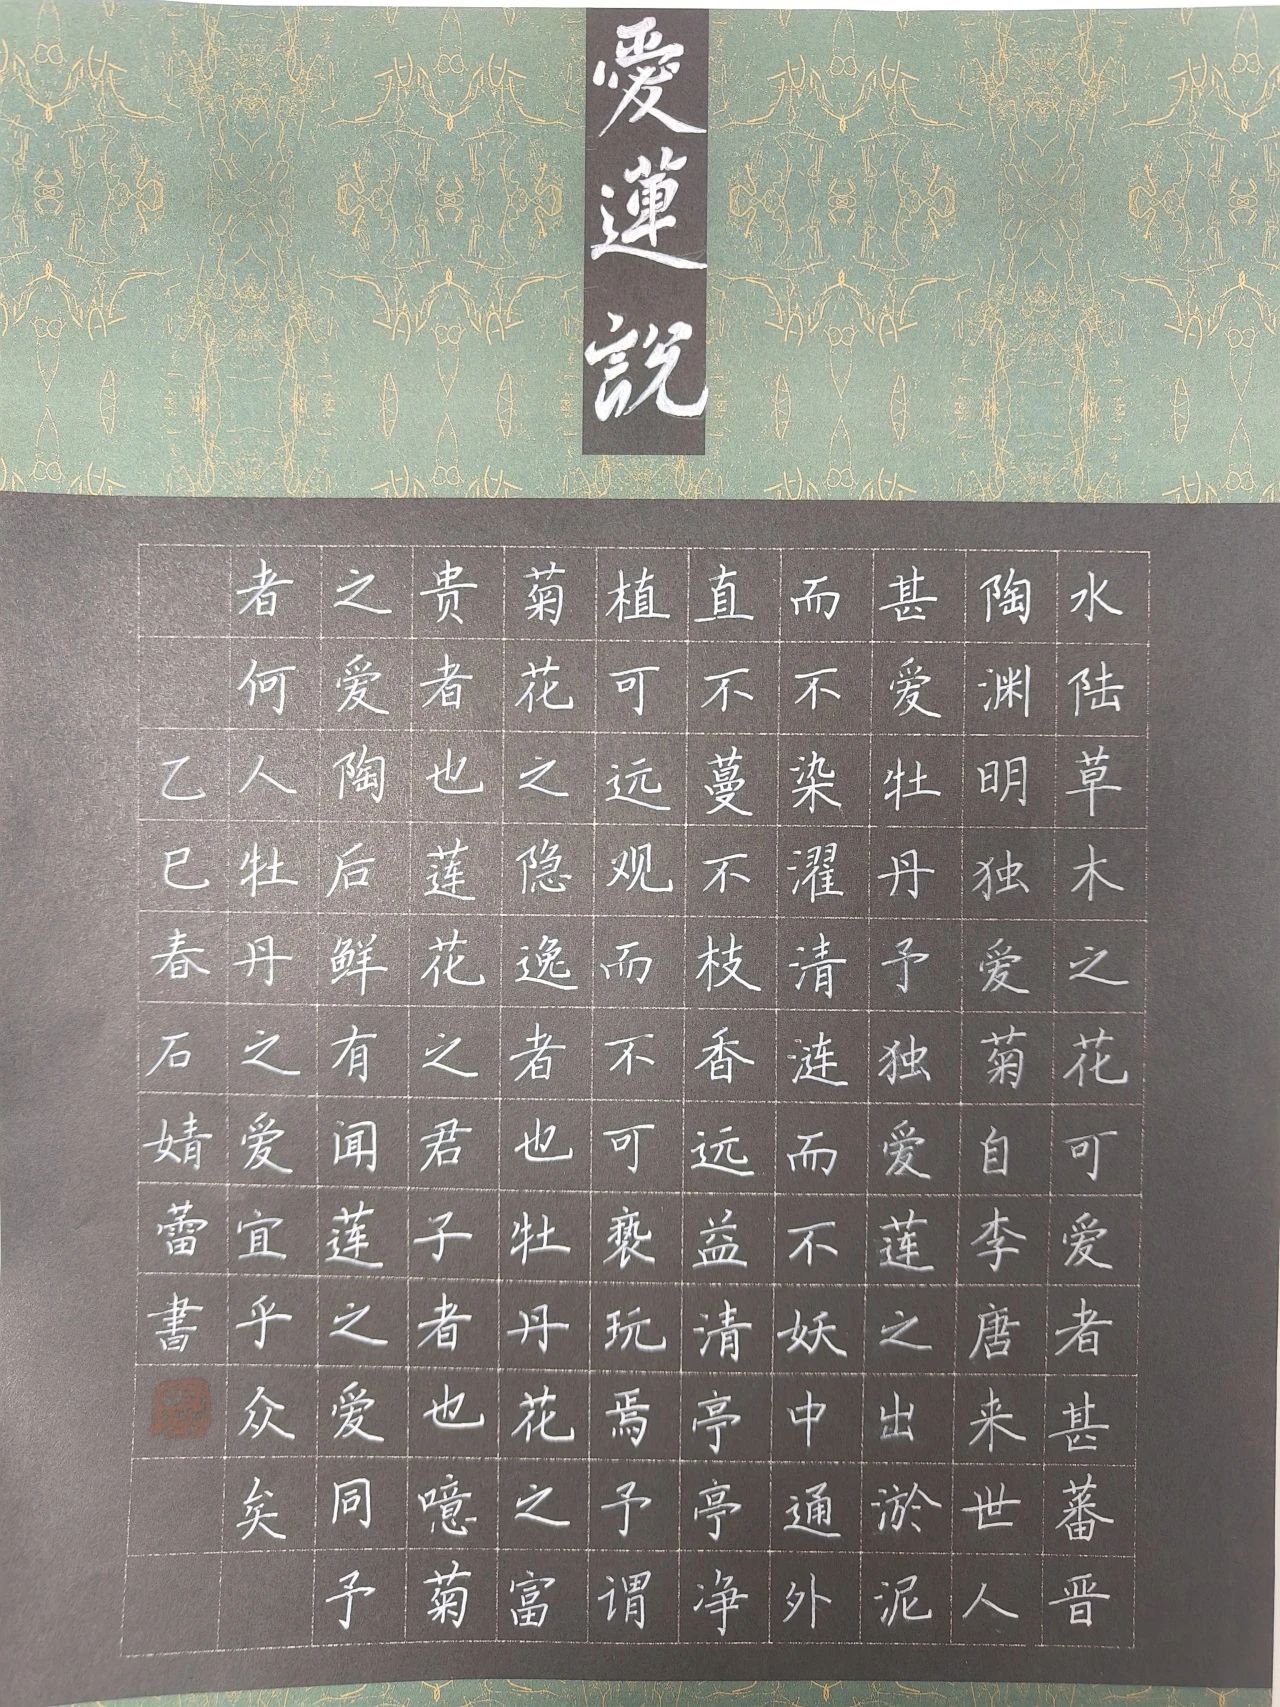 愛蓮說
水陆草木之花可爱者甚蕃晋
陶渊明独爱菊自李唐来世人
甚爱牡丹予独爱莲之出淤泥
而不染濯清涟而不妖中通外
直不蔓不枝香远益清亭亭净
植可远观而不可亵玩焉予谓
菊花之隐逸者也牡丹花之富
贵者也莲花之君子者也噫菊
之爱陶后鲜有闻莲之爱同予
者何人牡丹之爱宜乎众矣
乙巳春石婧蕾書